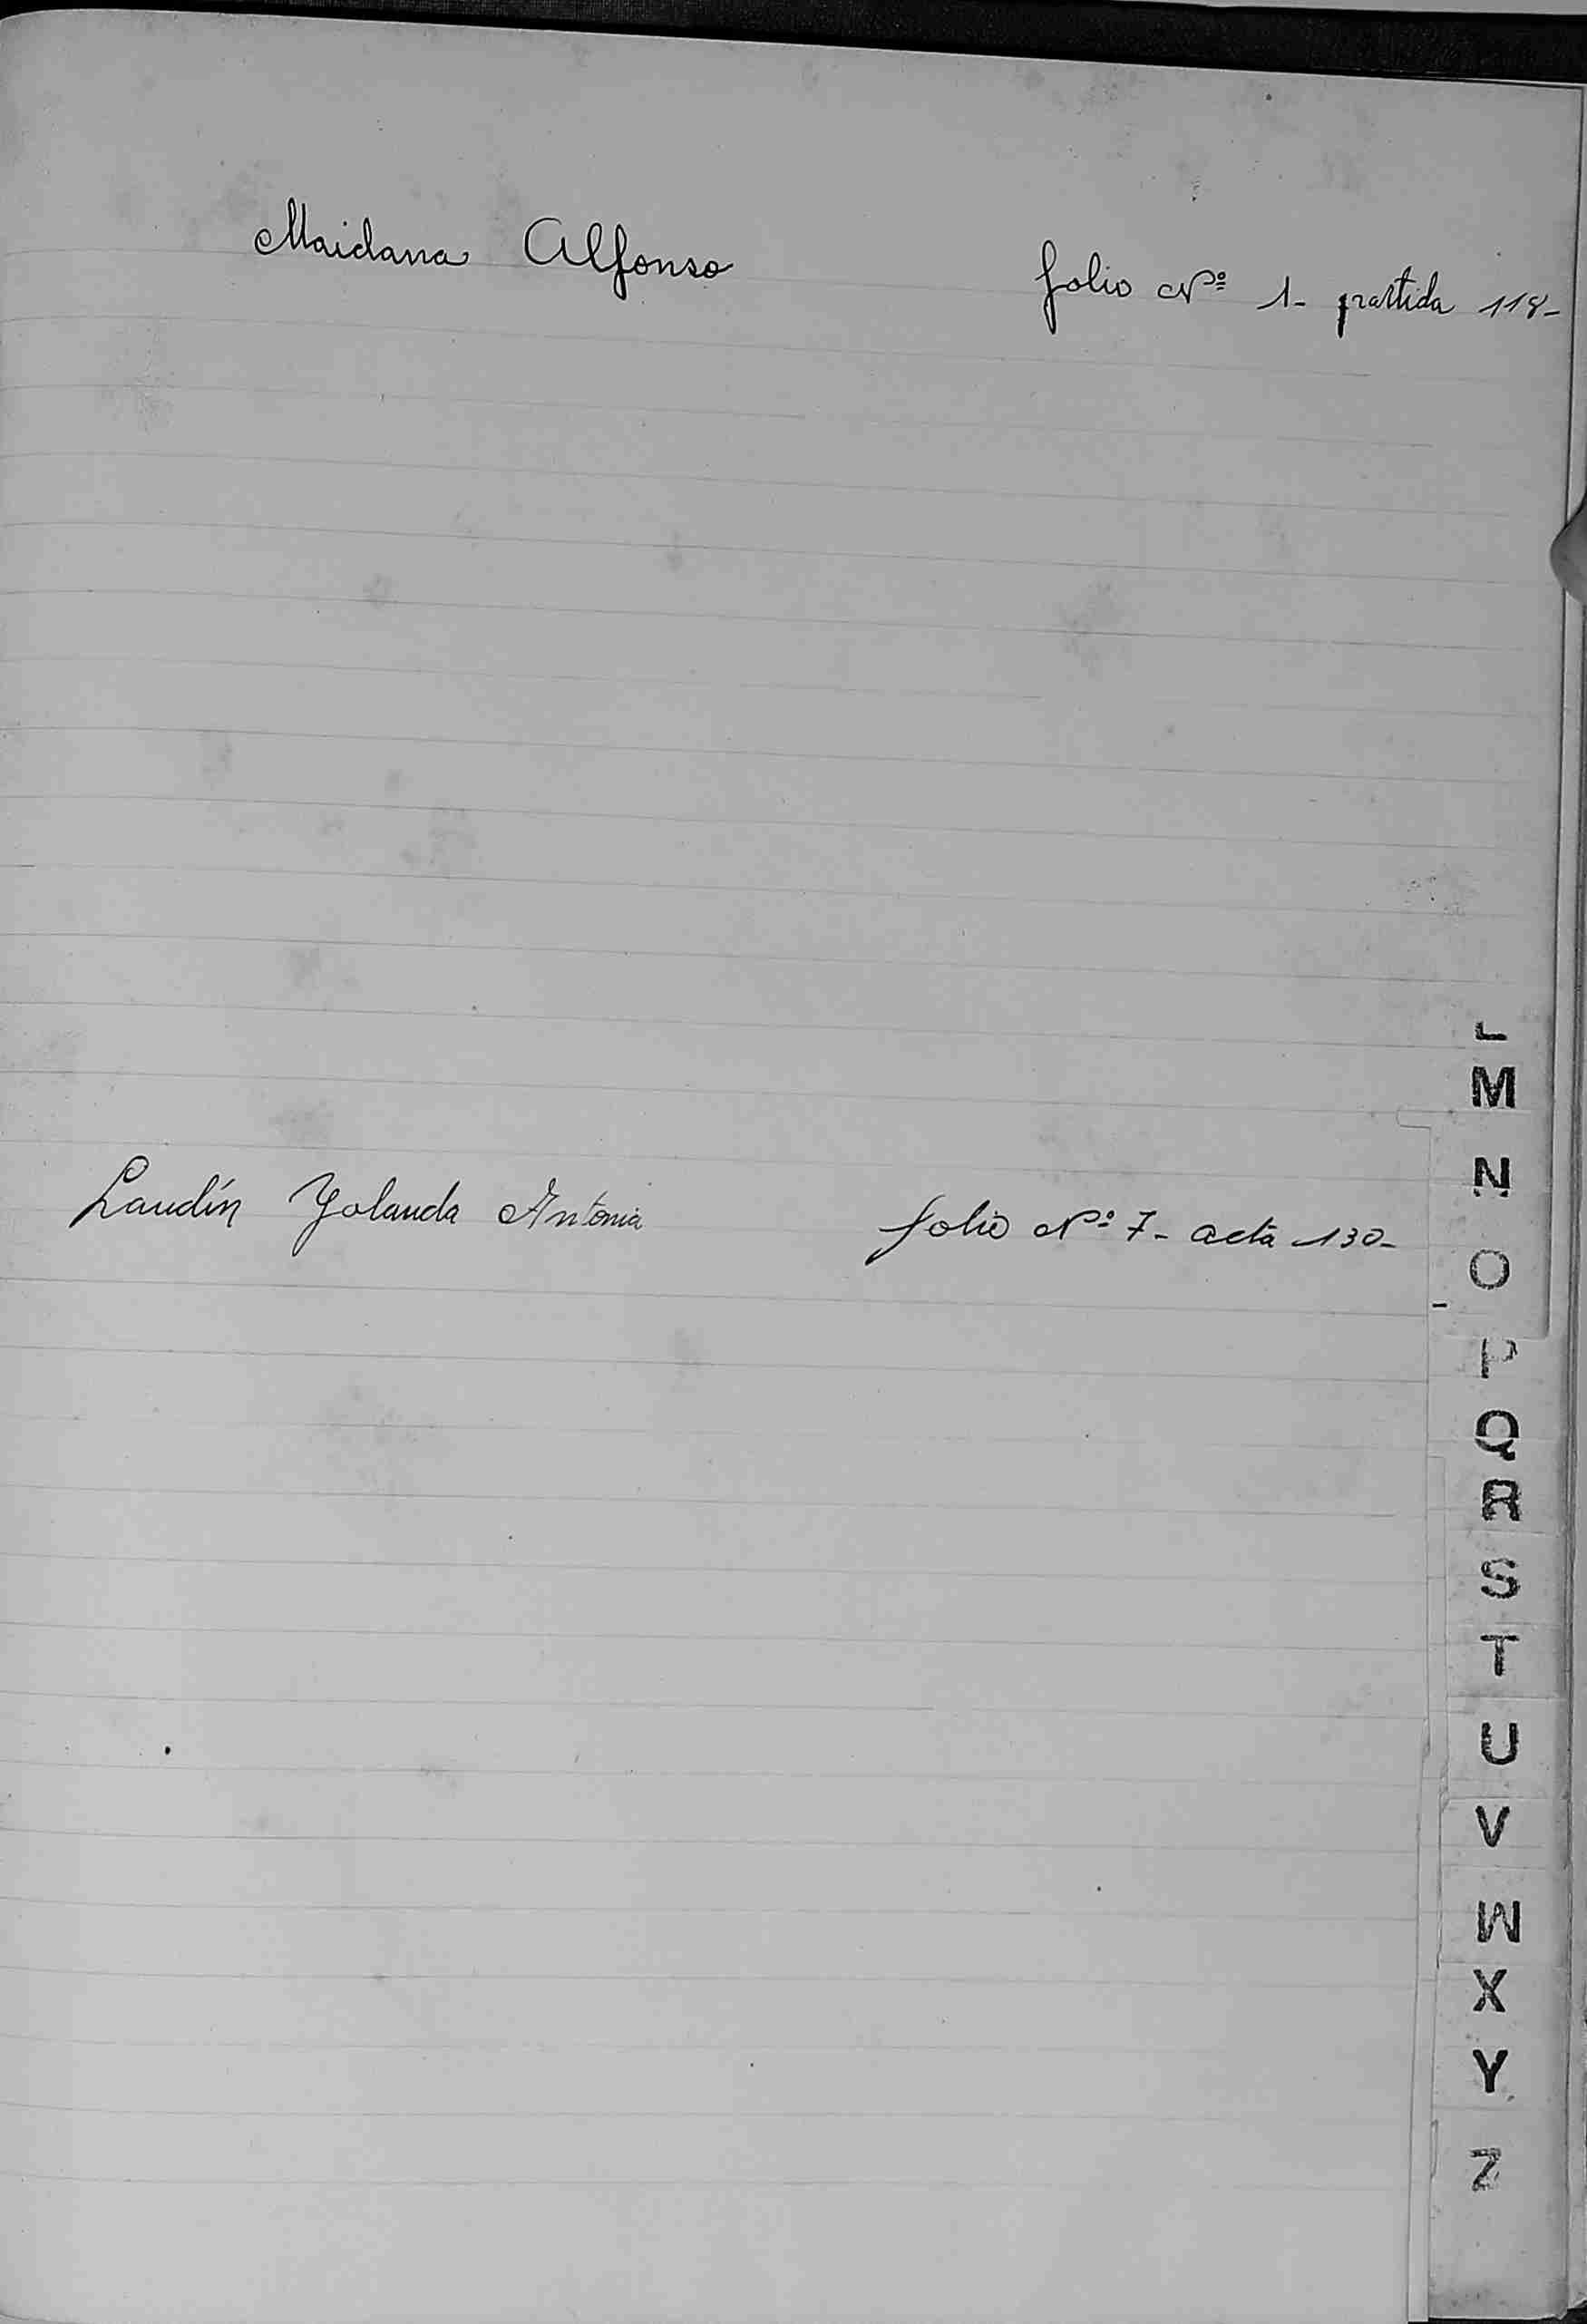 Maidana Alfonso folio Nº 1- partida 118-
L
M
N
Landín Yolanda Antonia folio Nº 7- acta 130-
O
P
Q
R
S
T
U
V
W
X
Y
Z